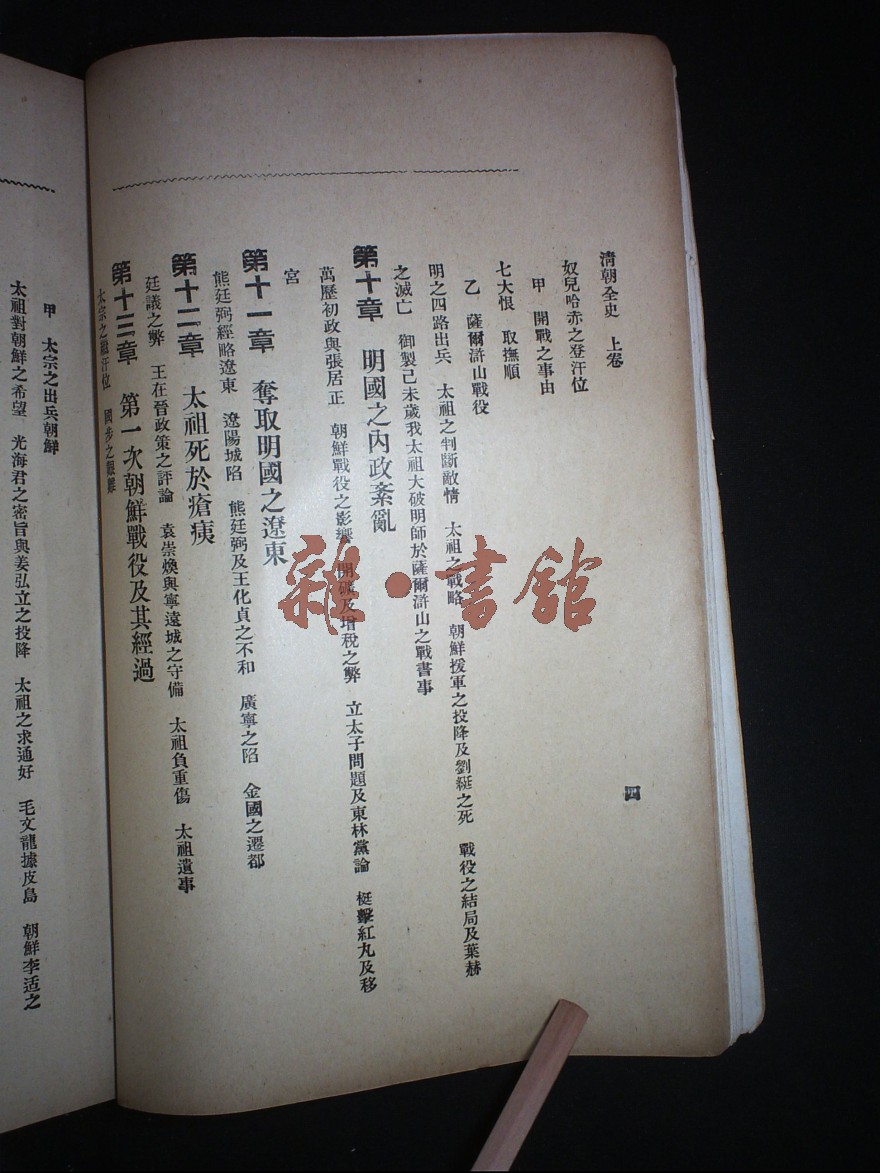 清朝全史　上卷
四
奴兒哈赤之登汗位
甲　開戰之事由
七大恨　取撫順
乙　薩爾滸山戰役
明之四路出兵　太祖之判斷敵情　太祖之戰略　朝鮮援軍之投降及劉綎之死　戰役之結局及葉赫
之滅亡　御製己未歲我太祖大破明師於薩爾滸山之戰書事
第十章　明國之內政紊亂
萬歷初政與張居正　朝鮮戰役之影響　開礦及增稅之弊　立太子問題及東林黨論　梃擊紅丸及移
宮
第十一章　奪取明國之遼東
熊廷弼經略遼東　遼陽城陷　熊廷弼及王化貞之不和　廣寧之陷　金國之遷都
第十二章　太祖死於瘡痍
廷議之弊　王在晉政策之評論　袁崇煥與寧遠城之守備　太祖負重傷　太祖遺事
第十三章　第一次朝鮮戰役及其經過
太宗之繼汗位　國步之艱難
甲　太宗之出兵朝鮮
太祖對朝鮮之希望　光海君之密旨與姜弘立之投降　太祖之求通好　毛文龍據皮島　朝鮮李适之
雜·書館